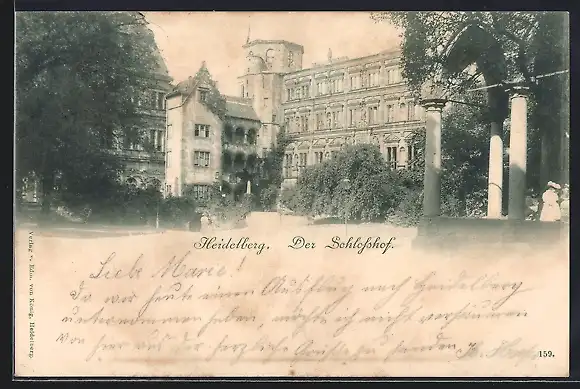 Heidelberg. Der Schloßhof.
Liebe Marie!
Da wir heute einen Ausflug nach Heidelberg
unternommen haben, möchte ich nicht versäumen
von hier aus dir herzliche Grüße zu senden
159.
Verlag v. Edm. von König, Heidelberg